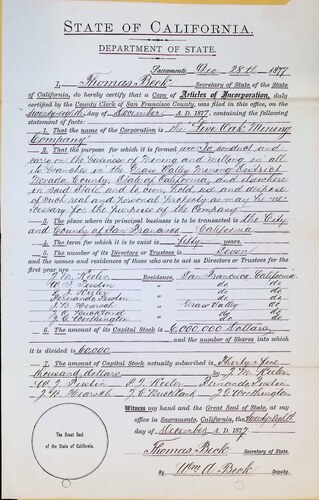 STATE OF CALIFORNIA.
DEPARTMENT OF STATE.
Sacramento, Dec 28th 1877
I, Thomas Beck Secretary of State of the State
of California, do hereby certify that a Copy of Articles of Incorporation, duly
certified by the County Clerk of San Francisco County, was filed in this office, on the
twenty eighth day of December A. D. 1877, containing the following
statement of facts:
1. That the name of the Corporation is the "Live Oak Mining
Company"
2. That the purposes for which it is formed are To conduct and
carry on the business of mining and milling in all
its branches in the Grass Valley Mining District
Nevada County, State of California, and elsewhere
in said State and to own, hold, use and dispose
of such real and personal property as may be ne-
cessary for the purposes of the Company
3. The place where its principal business is to be transacted is The City
and County of San Francisco California
4. The term for which it is to exist is fifty years.
5. The number of its Directors or Trustees is Seven
and the names and residences of those who are to act as Directors or Trustees for the
first year are
J. M. Keeler Residence, San Francisco, California.
W. T. do do
J. Keeler do do
do do
J. B. Grass Valley do
J. C. do do
J. C. Worthington do do
6. The amount of its Capital Stock is 6,000,000 Dollars
and the number of Shares into which
it is divided is 60,000
7. The amount of Capital Stock actually subscribed is Thirty five
thousand dollars by J. M. Keeler
W. T. Keeler
J. B. J. C. J. C. Worthington
Witness my hand and the Great Seal of State, at my
office in Sacramento, California, the twenty eighth
day of December A. D. 1877.
Thomas Beck Secretary of State.
By Wm A. Beck Deputy.
The Great Seal
of the State of California.